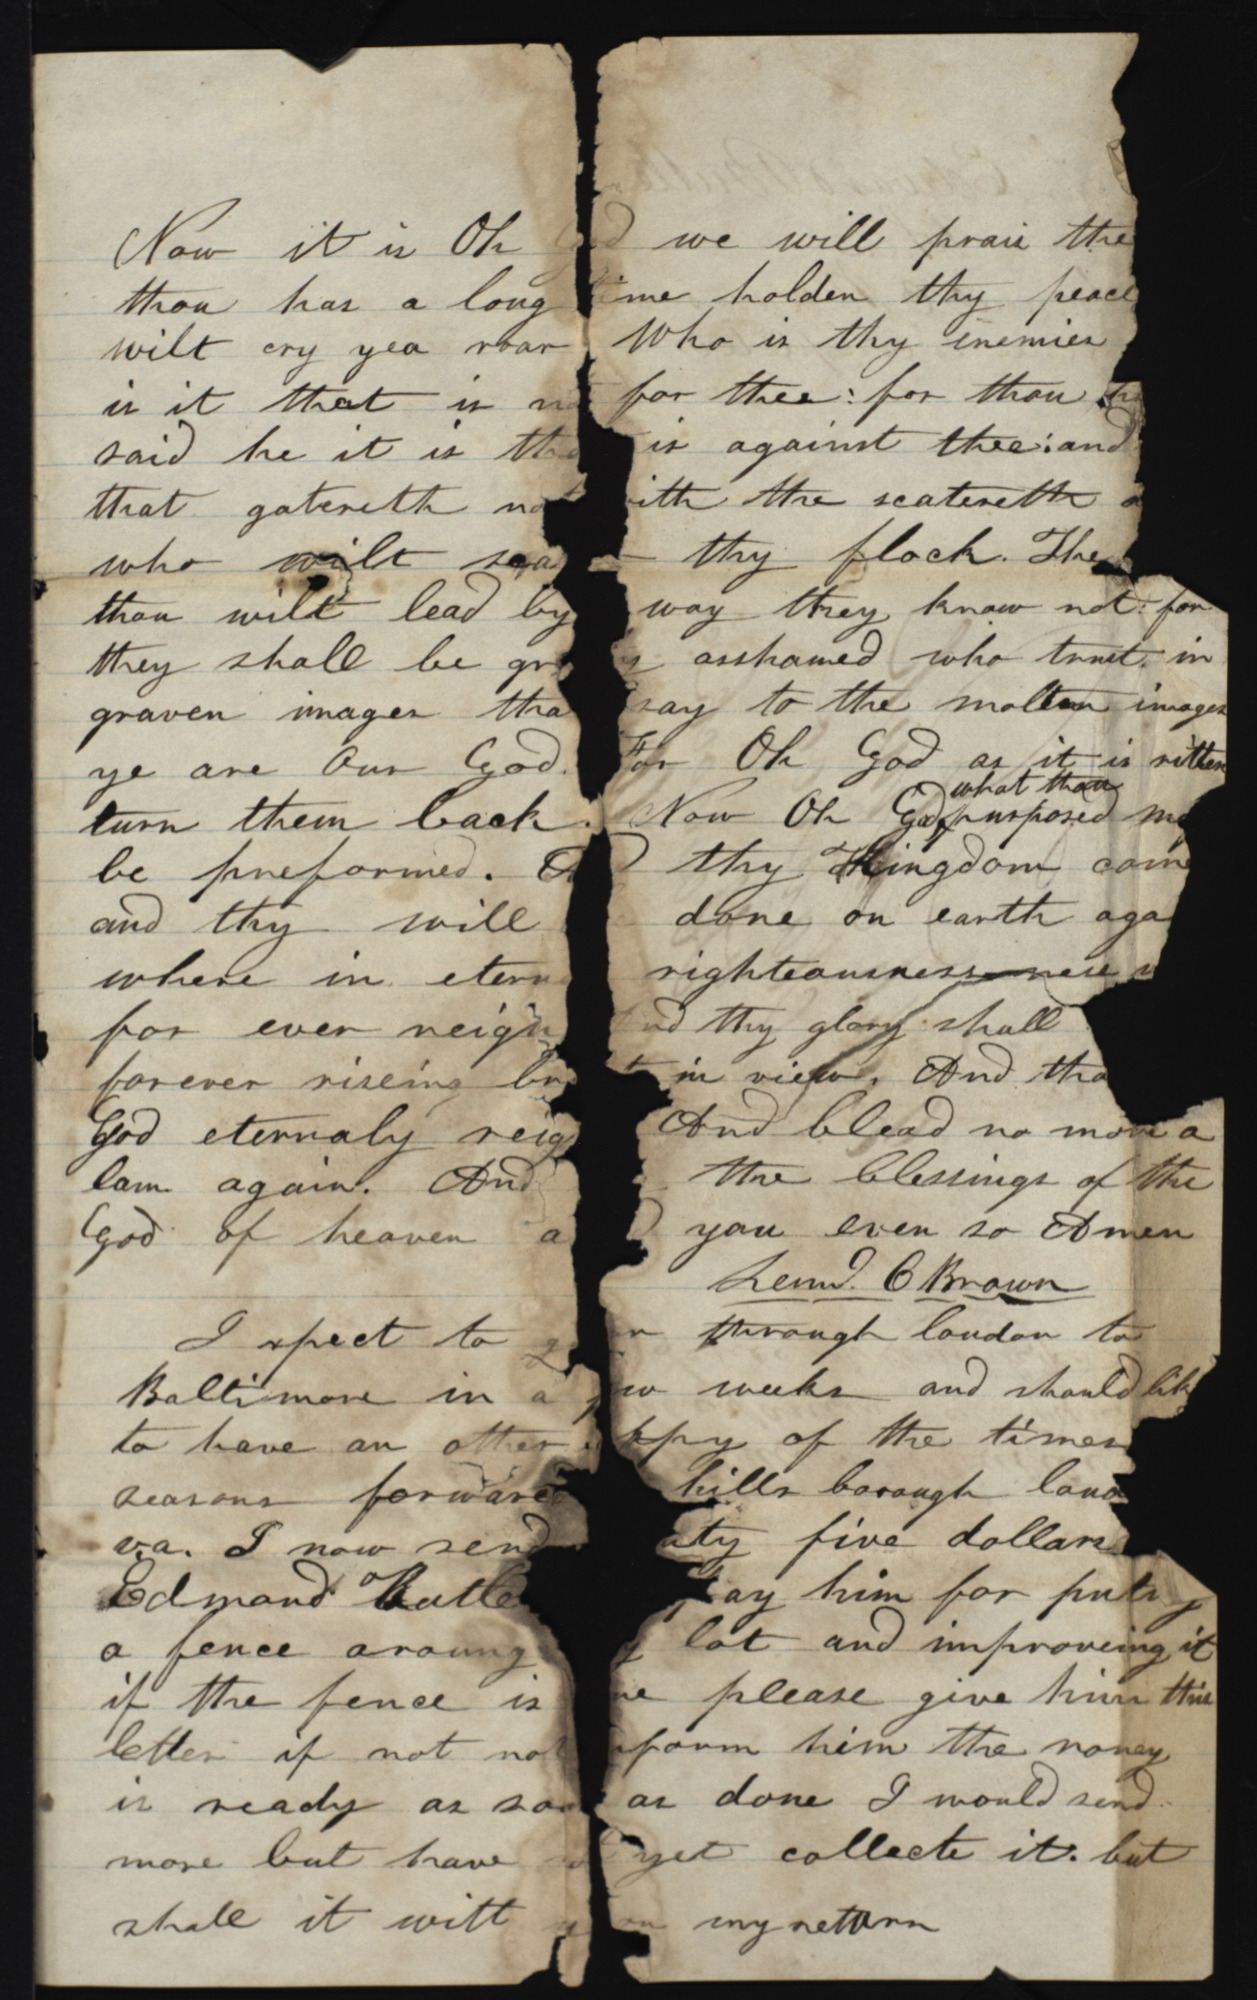 Now it is Oh God we will praise the
thou has a long time holden thy peace
wilt cry yea roar Who is thy enemies
is it that is not for thee: for thou
said he it is is against thee: and
that gatereth not with the scatereth
who wilt thy flock. The
thou wilt lead by way they know not: for
they shall be asshamed who trust in
graven images say to the molten images
ye are Our God. For Oh God as it is ritten
turn them back. Now Oh God what thou purposed
be preformed. thy Kingdom come
and thy will done on earth
where in righteousness
for ever reign and thy glory shall
forever riseing in view. And
God eternaly And blead no more a
lam again. And the blessings of the
God of heaven you even so Amen
Lemd. C Brown
I xpect to through loudon to
Baltimore in a weeks and should
to have an other of the times
seasons forward hills borough
va. I now send five dollars
Edmand him for
a fence aroung lot and improveing it
if the fence is please give him this
letter if not him the money
is ready as soon as done I would send
more but have yet collecte it. but
shall it witt my return